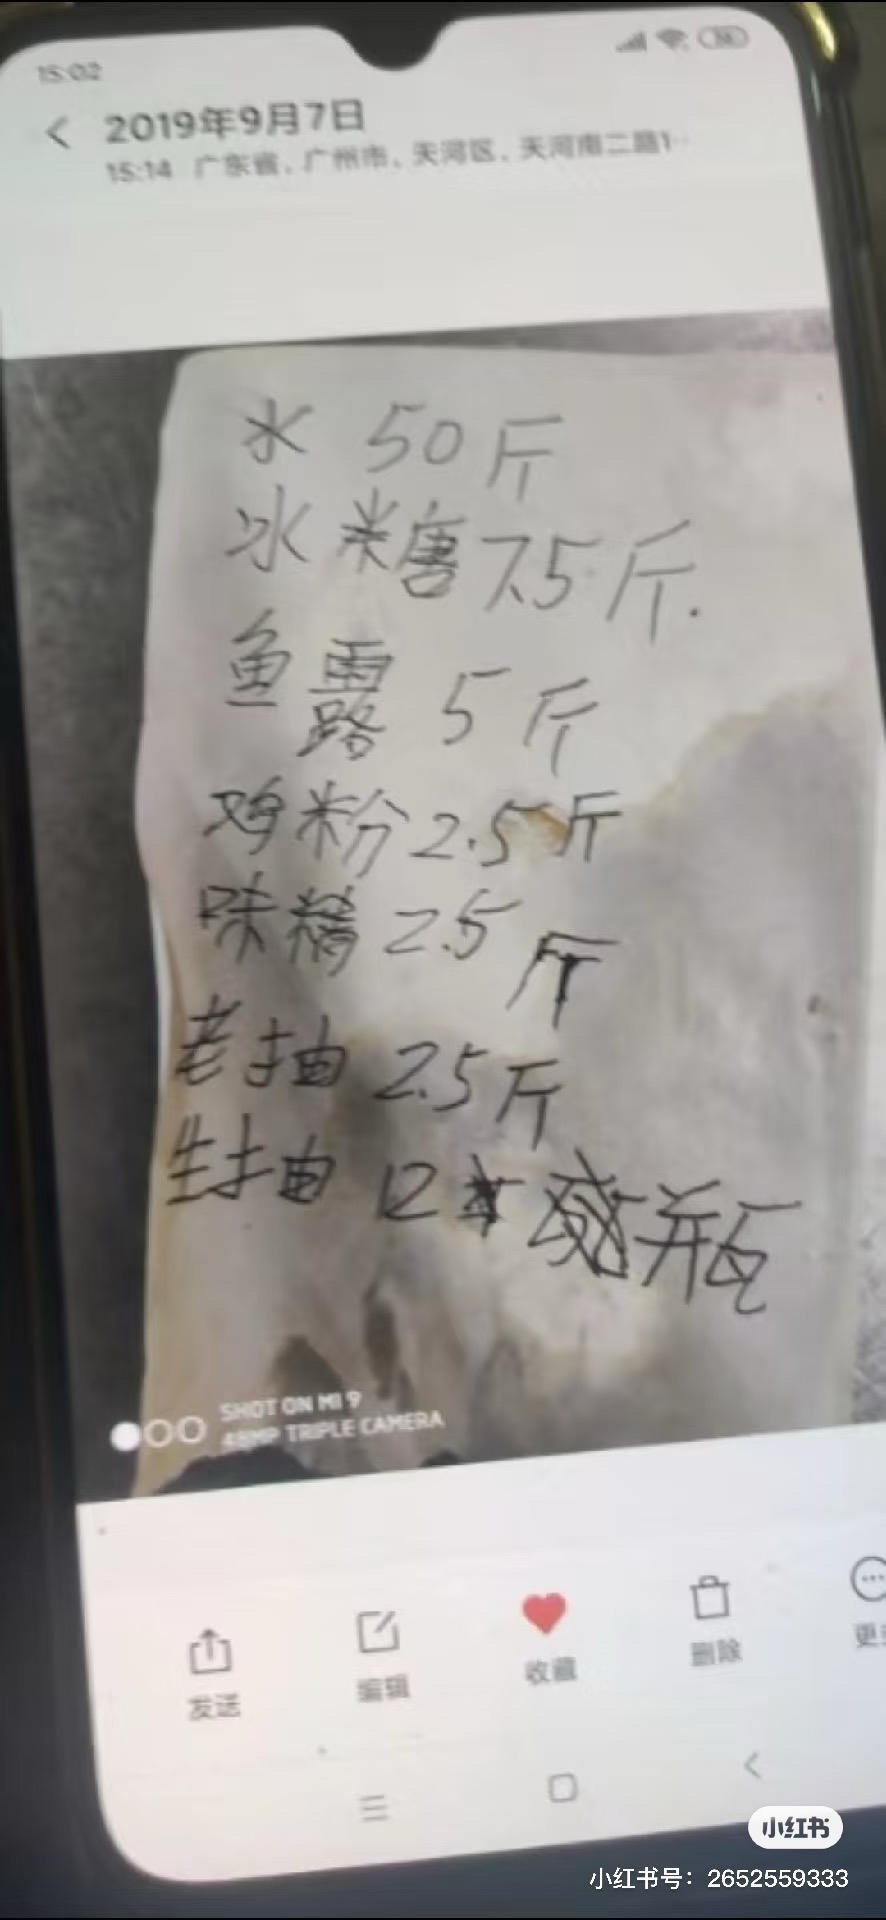 15:02
2019年9月7日
15:14 广东省、广州市、天河区、天河南二路1··
水 50斤
冰糖7.5斤.
鱼露 5斤
鸡粉2.5斤
味精2.5斤
老抽 2.5斤
生抽 12 瓶
SHOT ON MI 9
48MP TRIPLE CAMERA
发送 编辑 收藏 删除 更
小红书
小红书号：2652559333